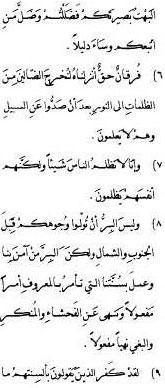 ألبهت بصيرتكم فضللتم وضل من
اتبعكم وساء دليلاً.
٦) فرقان حق أنزلناه لنخرج الضالين من
الظلمات إلى النور بعد أن صدوا عن السبيل
وهم لا يعلمون.
٧) وإنا لا نظلم الناس شيئاً ولكنهم
أنفسهم يظلمون.
٨) وليس البر أن تولوا وجوهكم قبل
الجنوب والشمال ولكن البر من آمن بنا
وعمل بسنتنا التي تأمر بالمعروف أمراً
مفعولاً وتنهى عن الفحشاء والمنكر
والبغي نهياً مفعولاً.
٩) لقد كفر الذين يقولون بألسنتهم ما